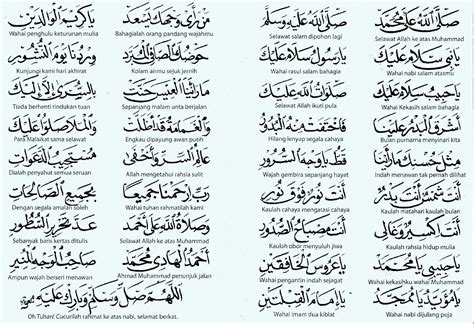 صَلَّى اللهُ عَلَى مُحَمَّدٍ
Selawat Allah ke atas Muhammad
صَلَّى اللهُ عَلَيْهِ وَسَلَّمَ
Selawat salam dipohon lagi
يَا نَبِي سَلَامٌ عَلَيْكَ
Wahai nabi salam atasmu
يَا رَسُولْ سَلَامٌ عَلَيْكَ
Wahai rasul salam bahagia
يَا حَبِيبْ سَلَامٌ عَلَيْكَ
Wahai Kekasih salam bahagia
صَلَوَاتُ اللهِ عَلَيْكَ
Selawat Allah ikuti pula
أَشْرَقَ الْبَدْرُ عَلَيْنَا
Bulan purnama menyinari kita
فَاخْتَفَتْ مِنْهُ الْبُدُورُ
Hilang lenyap segala cahaya
مِثْلَ حُسْنِكَ مَا رَأَيْنَا
Indah menawan tak pernah dilihat
قَطُّ يَا وَجْهَ السُّرُورِ
Wajah gembira sepanjang hayat
أَنْتَ شَمْسٌ أَنْتَ بَدْرٌ
Kaulah matahari kaulah bulan
أَنْتَ نُورٌ فَوْقَ نُورٍ
Kaulah cahaya mengatasi cahaya
أَنْتَ إِكْسِيرٌ وَغَالِي
Kaulah rahsia hidup mulia
أَنْتَ مِصْبَاحُ الصُّدُورِ
Kaulah obor menyuluh jiwa
يَا حَبِيبِي يَا مُحَمَّدُ
Wahai kekasihku wahai Muhammad
يَا عَرُوسَ الْخَافِقَيْنِ
يَا مُؤَيَّدُ يَا مُمَجَّدُ
Wahai nabi dijulang puja
يَا إِمَامَ الْقِبْلَتَيْنِ
Wahai imam dua kiblat
مَنْ رَأَى وَجْهَكَ يَسْعَدُ
Bahagialah orang pandang wajahmu
يَا كَرِيمَ الْوَالِدَيْنِ
Wahai penghulu keturunan mulia
حَوْضُكَ الصَّافِي الْمُبَرَّدُ
Kolam airmu sejuk jernih
وِرْدُنَا يَوْمَ النُّشُورِ
Kunjungi kami hari akhirat
مَا رَأَيْنَا الْعِيسَ حَنَّتْ
Sepanjang malam unta berjalan
بِالسُّرَى إِلَّا إِلَيْكَ
Tiada berhenti rindukan tuan
وَالْغَمَامَةُ قَدْ أَظَلَّتْ
Engkau dipayung awan putih
وَالْمَلَا صَلُّوا عَلَيْكَ
Para Malaikat sama selawat
عَالِمُ السِّرِّ وَأَخْفَى
Allah mengetahui rahsia sulit
مُسْتَجِيبُ الدَّعَوَاتِ
Dialah penyahut semua seruan
رَبِّ ارْحَمْنَا جَمِيعًا
Wahai tuhan rahmatilah kami
بِجَمِيعِ الصَّالِحَاتِ
Dengan segala amalan soleh
وَصَلَاةُ اللهِ عَلَى أَحْمَدَ
Selawat Allah ke atas Muhammad
عَدَّ تَحْرِيرِ السُّطُورِ
Sebanyak baris kertas ditulis
أَحْمَدُ الْهَادِي مُحَمَّدُ
Ahmad Muhammad penunjuk jalan
صَاحِبُ الْوَجْهِ الْمُنِيرِ
Ampun wajah berseri menawan
اللَّهُمَّ صَلِّ وَسَلِّمْ وَبَارِكْ عَلَيْهِ
Oh Tuhan! Cucurilah rahmat ke atas nabi, selamat berkat.